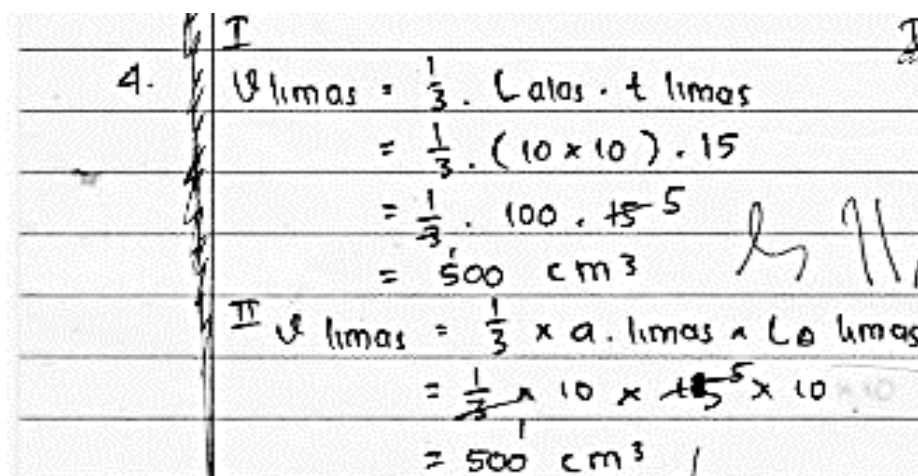 I
4. V limas = 1/3 . L alas . t limas
= 1/3 . (10 x 10) . 15
= 1/3 . 100 . 15 5
= 500 cm³
II V limas = 1/3 x a. limas x L△ limas
= 1/3 x 10 x 15 5 x 10 x 10
= 500 cm³